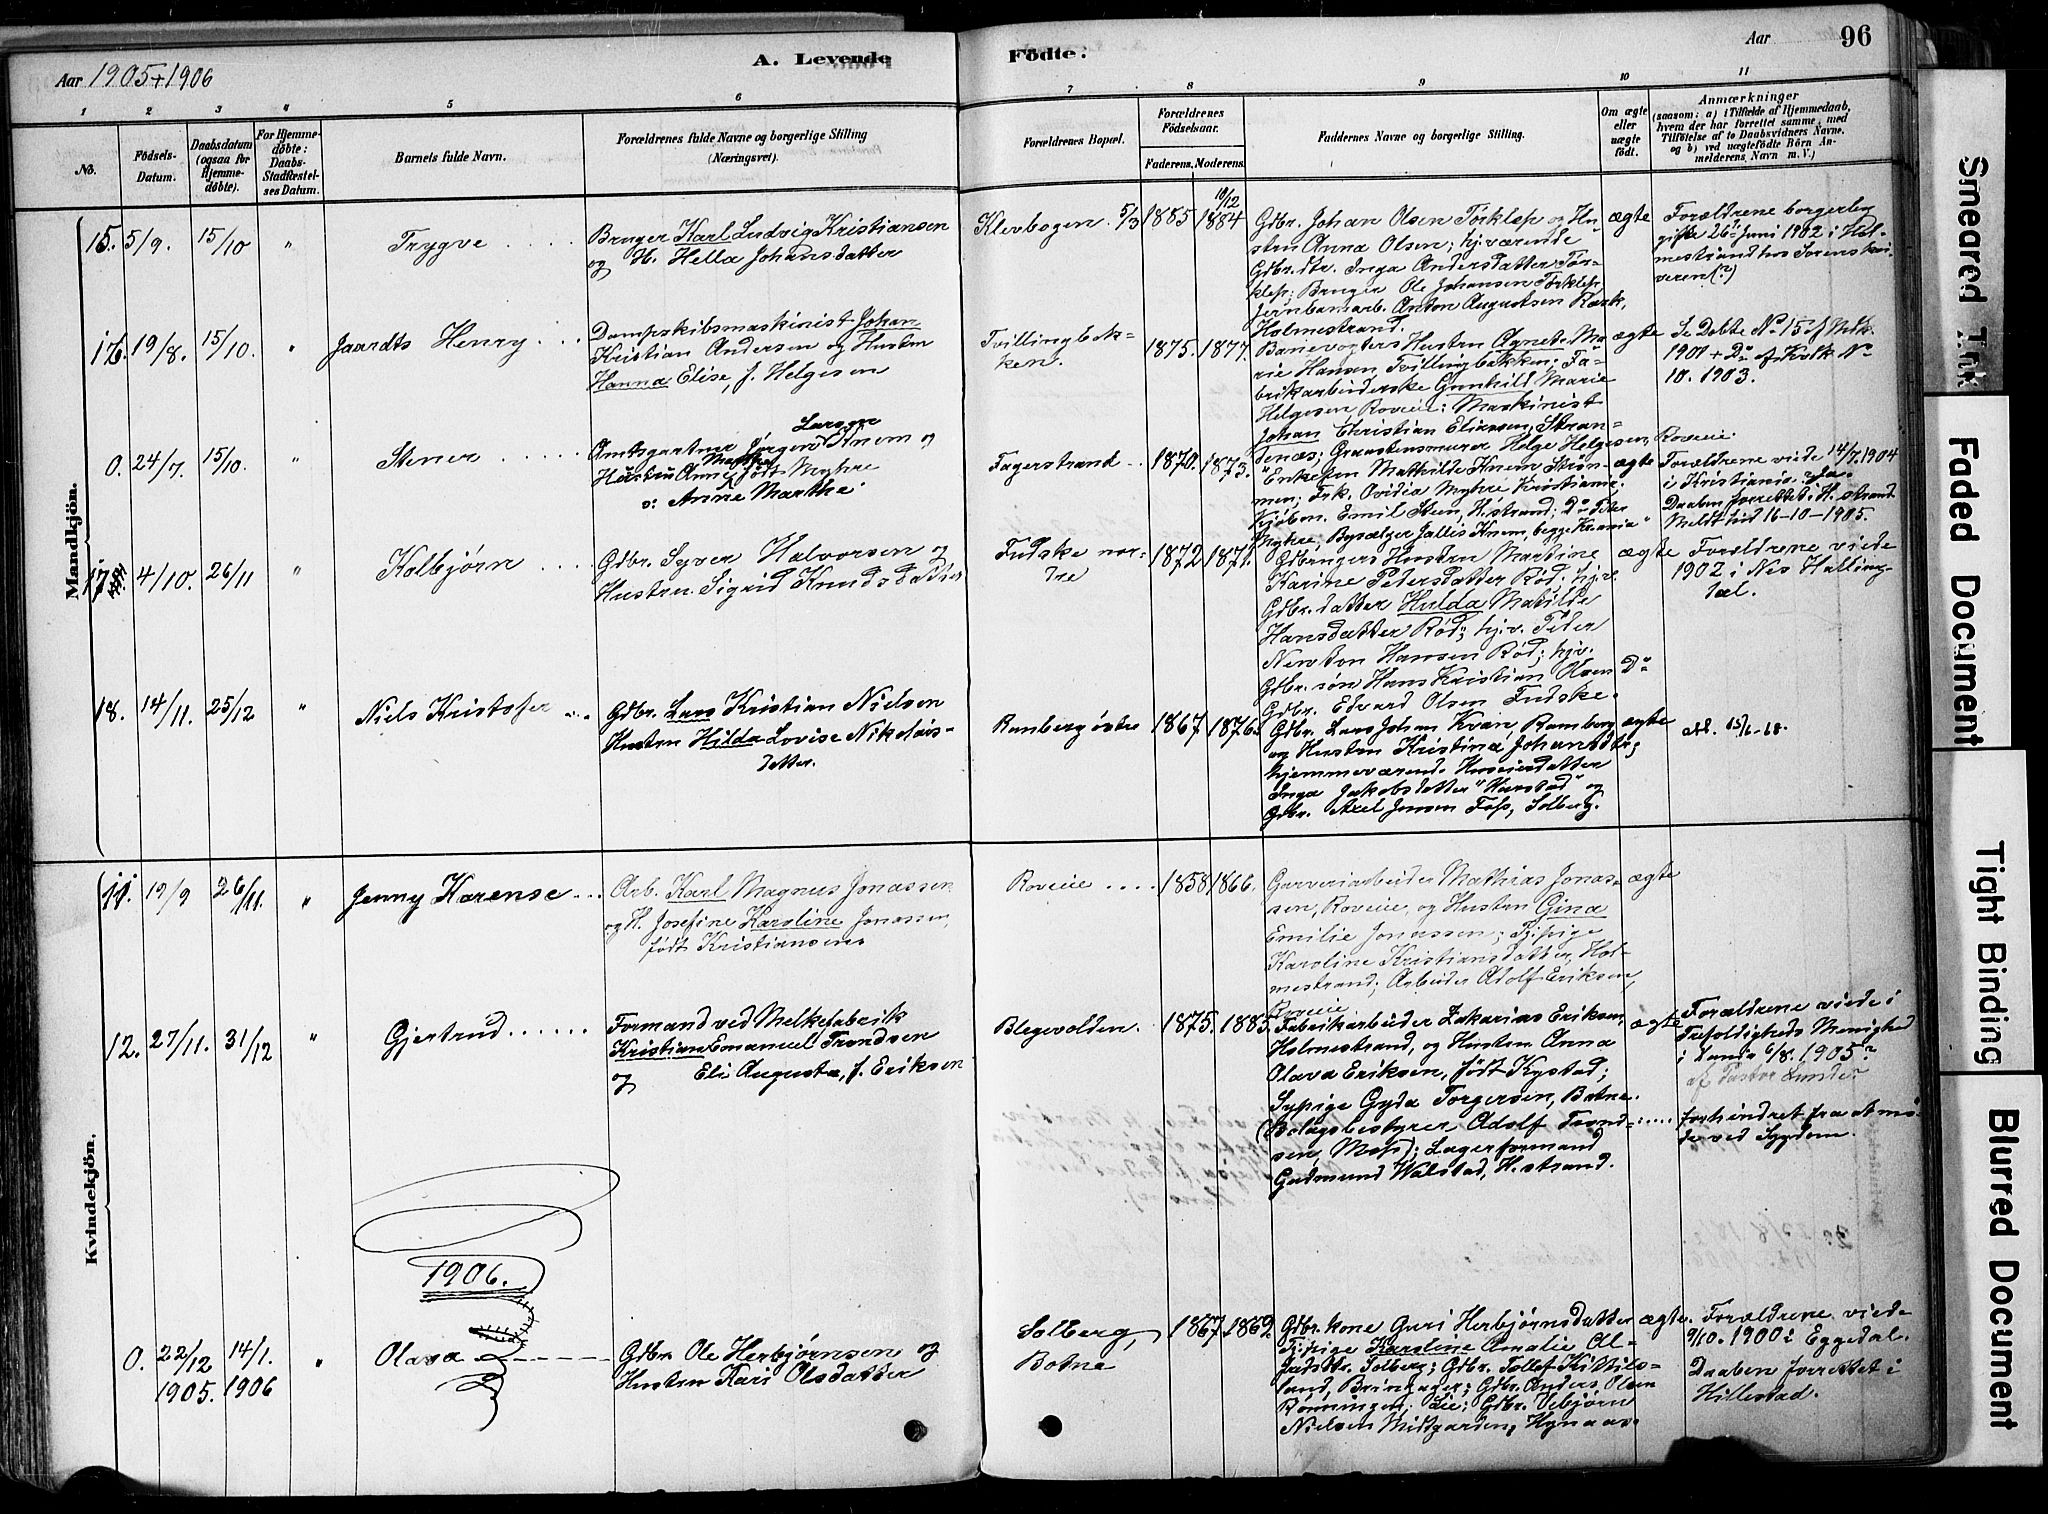 Aar 1905+1906
A. Levende
Födte.
Aar 96
1 2 3 4 5 6 7 8 9 10 11
No.
Födsels-
Datum.
Daabsdatum
(ogsaa for
Hjemme-
døbte).
For Hjemme-
døbte:
Daabs-
Stadfæstel-
ses Datum.
Barnets fulde Navn.
Forældrenes fulde Navne og borgerlige Stilling
(Næringsvei).
Forældrenes Bopæl.
Forældrenes
Födselsaar.
Faderens. Moderens.
Faddernes Navne og borgerlige Stilling.
Om ægte
eller
uægte
födt.
Anmærkninger
(saasom: a) i Tilfælde af Hjemmedaab,
hvem der har forrettet samme, med
Tilföielse af to Daabsvidners Navne,
og b) ved uægtefödte Börn An-
melderens Navn m. V.)
Mandkjön.
15. 5/9. 15/10 " Trygve
Bruger Karl Ludvig Kristiansen
og H. Hella Johansdatter
Klevbogen. 5/3 1885 10/12 1884
Gdbr. Johan Olsen Torklep og Hu-
stru Anna Olsen; hj.værende
Gdbr.dtr. Inga Andersdatter Tor-
klep; Bruger Ole Johansen Torklep,
Jernbanearb. Anton Augustsen Rærk,
Holmestrand.
ægte
Forældrene borgerlig
gifte 26de Juni 1902 i Hol-
mestrand hos Sorenskri-
veren (?)
16. 19/8. 15/10. " Jaardts Henry
Dampskibsmaskinist Johan
Kristian Andersen og Hustru
Hanna Elise, f. Helgesen
Tvillingbak-
ken.
1875. 1877.
Banevogters Hustru Agnete Ma-
rie Hansen, Tvillingbakken; Fa-
brikarbeiderske Gunhild Marie
Helgesen, Roveie; Maskinist
Johan Christian Eliasen, Stran-
denæs; Graastensmurer Helge Helgesen,
Roveie.
ægte
Se Døbte No 15 af Mdk.
1901 + Do af Kvdk No
10. 1903.
0. 24/7. 15/10. " Stener
Amtsgartner Jørgen Larsen Knem og
Hustru Anne Marthe født Myhre
o: Anne Marthe.
Fagerstrand 1870. 1873.
"Enkefru Mathilde Knem Strøm-
men; Frk. Ovidia Myhre Kristiania;
Kjøbm. Emil Steen, H.strand; Do Peter
Myhre, Bysælger Jallis Knem, begge Kr.ania"
ægte
Forældrene viede 14/7. 1904
i Kristiania
Daaben forrettet i H.strand.
Meldt hid 16-10-1905.
17. 4/10. 26/11 " Kolbjørn
Gdbr. Syver Halvorsen og
Hustru Sigrid Knudsdatter
Fudske nor-
dre
1872 1871.
Gdbrugers Hustru Martine
Karine Petersdatter Rød; hj.v.
Gdbr. datter Hulda Matilde
Hansdatter Rød; hj.v. Peter
Newton Hansen Rød; hjv.
Gdbr. søn Hans Kristian Olsen Do
Gdbr. Edvard Olsen Fudske.
ægte
Forældrene viede
1902 i Nes Halling-
dal.
18. 14/11. 25/12 " Niels Kristofer
Gdbr. Lars Kristian Nielsen
Hustru Hilda Lovise Nikolais-
datter.
Ramberg østre 1867 1876.
Gdbr. Lars Johan Kvan, Ramberg
og Hustru Kristina Johansdtr;
hjemmeværende Huseierdatter
Inga Jakobsdatter "Harstad" og
Gdbr. Axel Jensen Foss, Solberg.
ægte
att. 15/6-68.
Kvindekjön.
11. 19/9 26/11. " Jenny Karense
Arb. Karl Magnus Jonassen
og H. Josefine Karoline Jonassen,
født Kristiansen.
Roveie 1858 1866.
Garveriarbeider Mathias Jonas-
sen, Roveie, og Hustru Gina
Emilie Jonassen; Pipige
Karoline Kristiansdatter, Hol-
mestrand; Arbeider Adolf Eriksen,
Roveie
ægte
12. 27/11. 31/12 " Gjertrud
Formand ved Melkefabrik
Kristian Emanuel Trondsen
og Eli Augusta, f. Eriksen
Blegevolden. 1875. 1883.
Fabrikarbeider Zakarias Eriksen,
Holmestrand, og Hustru Anna
Olava Eriksen, født Kystad;
Sypige Gyda Torgersen, Botne.
(Bolagsbestyrer Adolf Trond-
sen, Moss); Lagerformand
Gudmund Walstad, H.strand.
ægte
Forældrene viede i
Trefoldigheds Menighed
6/8. 1905?
af Pastor Lunde?
forhindret fra at mø-
de ved Sygdom.
1906.
0. 22/12 1905. 14/1. 1906 " Olava
Gdbr. Ole Herbjørnsen og
Hustru Kari Olsdatter
Solberg,
Botne
1867. 1869.
Gdbr. kone Guri Herbjørnsdatter
Pipige Karoline Amalie Al-
fadsttr. Solberg; Gdbr. Tollef Kittils-
land, Bringager; Gdbr. Anders Olsen
Rønningen, Lie; Gdbr. Vebjørn
Nielsen Midtgarden, Hynaas.
ægte.
Forældrene viede
9/10. 1900 i Eggedal.
Daaben forrettet i
Hillestad.
Smeared Ink
Faded Document
Tight Binding
Blurred Document